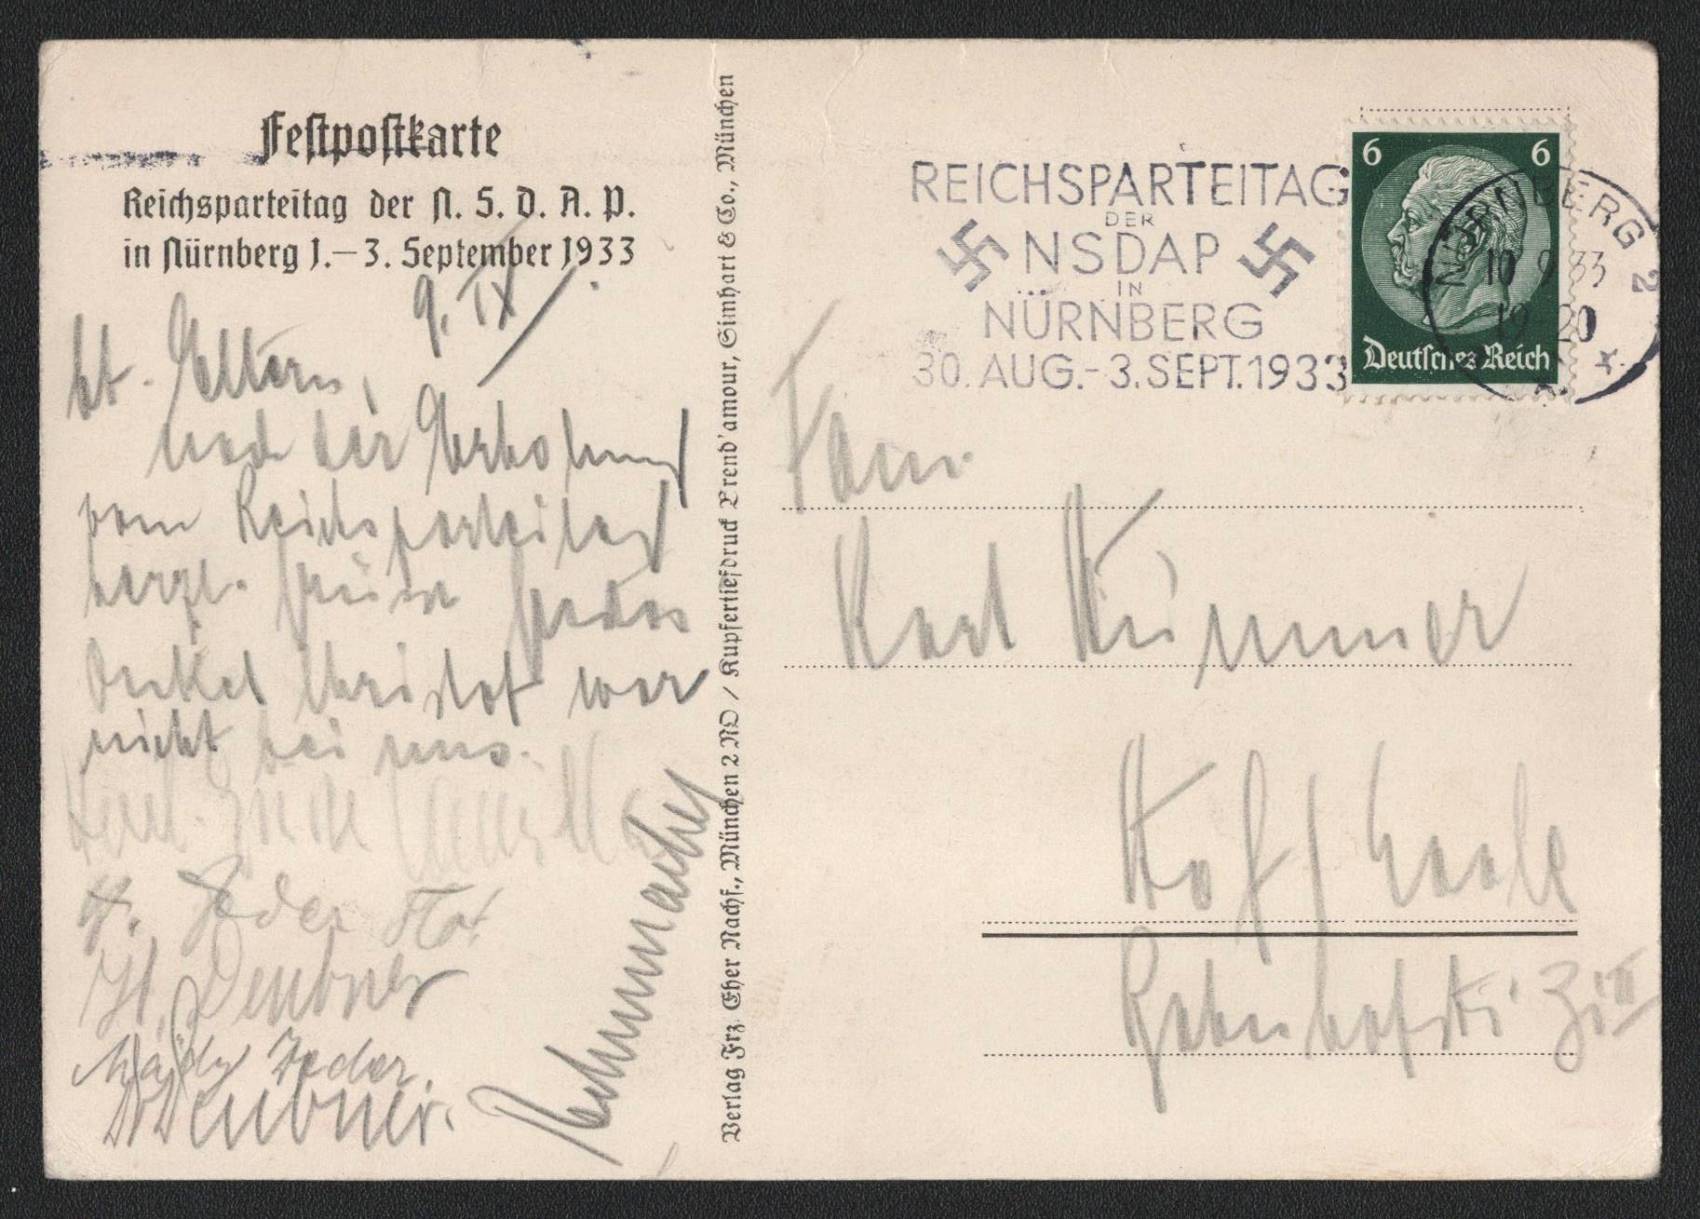 Festpostkarte
Reichsparteitag der N. S. D. A. P.
in Nürnberg 1.–3. September 1933
9. IX
Lb. Eltern,
nach der Erholung
vom Reichsparteitag
herzl. Grüße
Onkel Christof war
nicht bei uns.
H. Deubner
Deubner.
Verlag Frz. Eher Nachf., München 2 NO / Kupfertiefdruck Trend'amour, Simhart & Co., München
REICHSPARTEITAG
DER
NSDAP
IN
NÜRNBERG
30. AUG.-3. SEPT. 1933
6 6
Deutsches Reich
NÜRNBERG 2
10 9 33
19-20
Fam.
Karl Kümmer
Hof/Saale
Bahnhofstr.